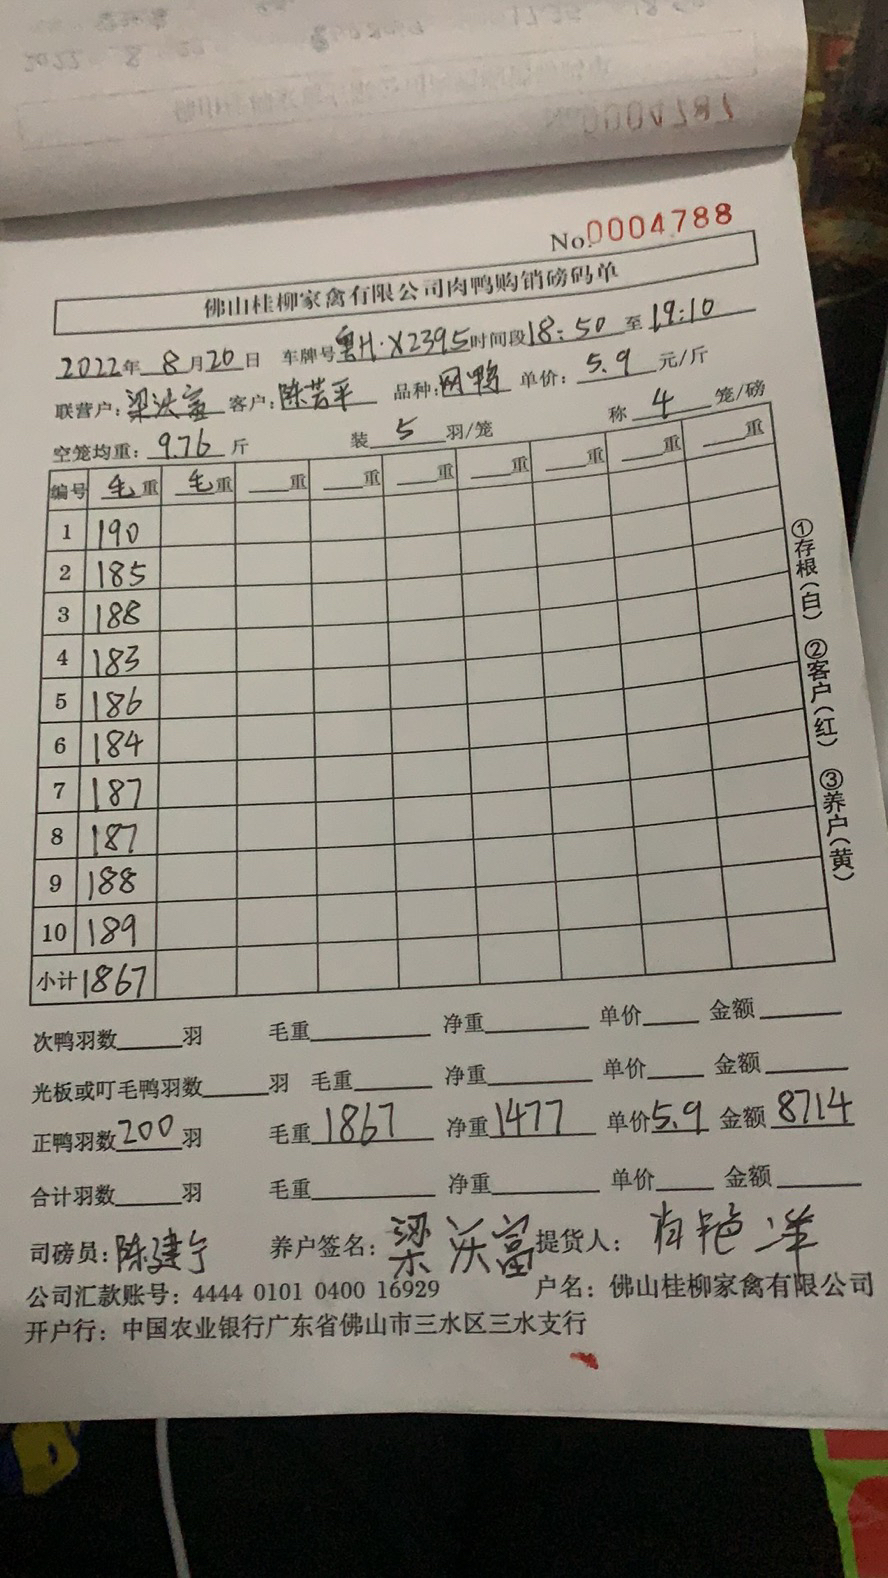 No.0004788
佛山桂柳家禽有限公司肉鸭购销磅码单
2022年 8月20日 车牌号粤H·X2395时间段18:50至19:10
联营户:梁沃富 客户:陈若平 品种:网鸭 单价:5.9元/斤
空笼均重:9.76斤 装5羽/笼 称4笼/磅
编号 毛重 毛重 重 重 重 重 重 重 重
1 190
2 185
3 188
4 183
5 186
6 184
7 187
8 187
9 188
10 189
小计 1867
①存根(白) ②客户(红) ③养户(黄)
次鸭羽数 羽 毛重 净重 单价 金额
光板或叮毛鸭羽数 羽 毛重 净重 单价 金额
正鸭羽数200羽 毛重1867 净重1477 单价5.9 金额8714
合计羽数 羽 毛重 净重 单价 金额
司磅员:陈建宁 养户签名:梁沃富 提货人:
公司汇款账号:4444 0101 0400 16929 户名:佛山桂柳家禽有限公司
开户行:中国农业银行广东省佛山市三水区三水支行